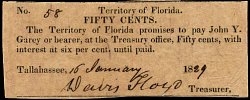 No. 58 Territory of Florida.
FIFTY CENTS.
The Territory of Florida promises to pay John Y.
Garey or bearer, at the Treasury office, Fifty cents, with
interest at six per cent, until paid.
Tallahassee, 15 January 1829
Davis Floyd Treasurer,